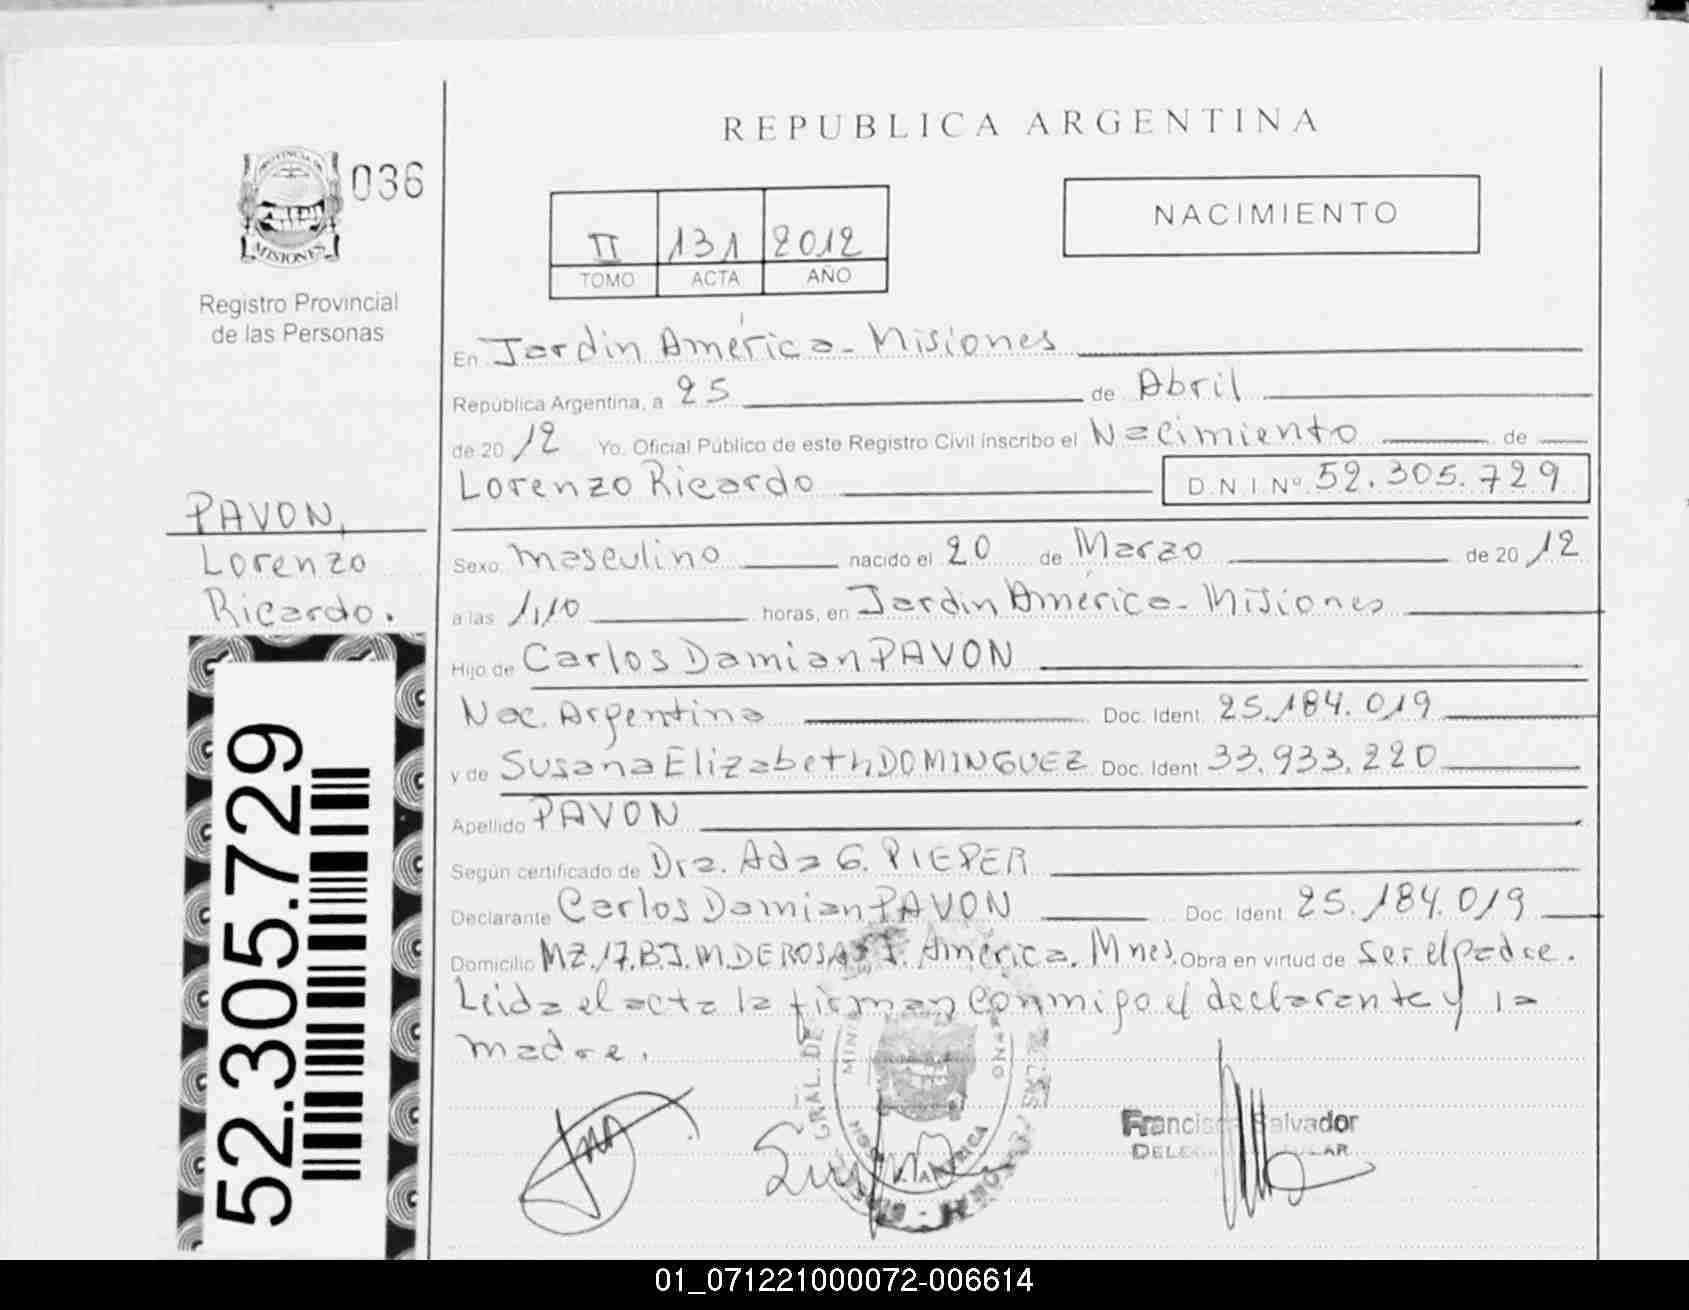 REPUBLICA ARGENTINA
PROVINCIA DE
MISIONES
036
Registro Provincial
de las Personas
II 131 2012
TOMO ACTA AÑO
NACIMIENTO
En Jardin América - Misiones
República Argentina, a 25 de Abril
de 20 12 Yo. Oficial Público de este Registro Civil inscribo el Nacimiento de
Lorenzo Ricardo D.N.I Nº 52.305.729
PAVON,
Lorenzo
Ricardo.
52.305.729
Sexo masculino nacido el 20 de Marzo de 20 12
a las 1,10 horas, en Jardin América - Misiones
Hijo de Carlos Damian PAVON
Nac. Argentina Doc. Ident. 25.184.019
y de Susana Elizabeth DOMINGUEZ Doc. Ident. 33.933.220
Apellido PAVON
Según certificado de Dra. Ada G. PIEPER
Declarante Carlos Damian PAVON Doc. Ident. 25.184.019
Domicilio MZ.17.B.J.M DE ROSAS J. América. Mnes. Obra en virtud de ser el padre.
Leida el acta la firman conmigo el declarante y la
madre.
GRAL. DE
Salvador
01_071221000072-006614